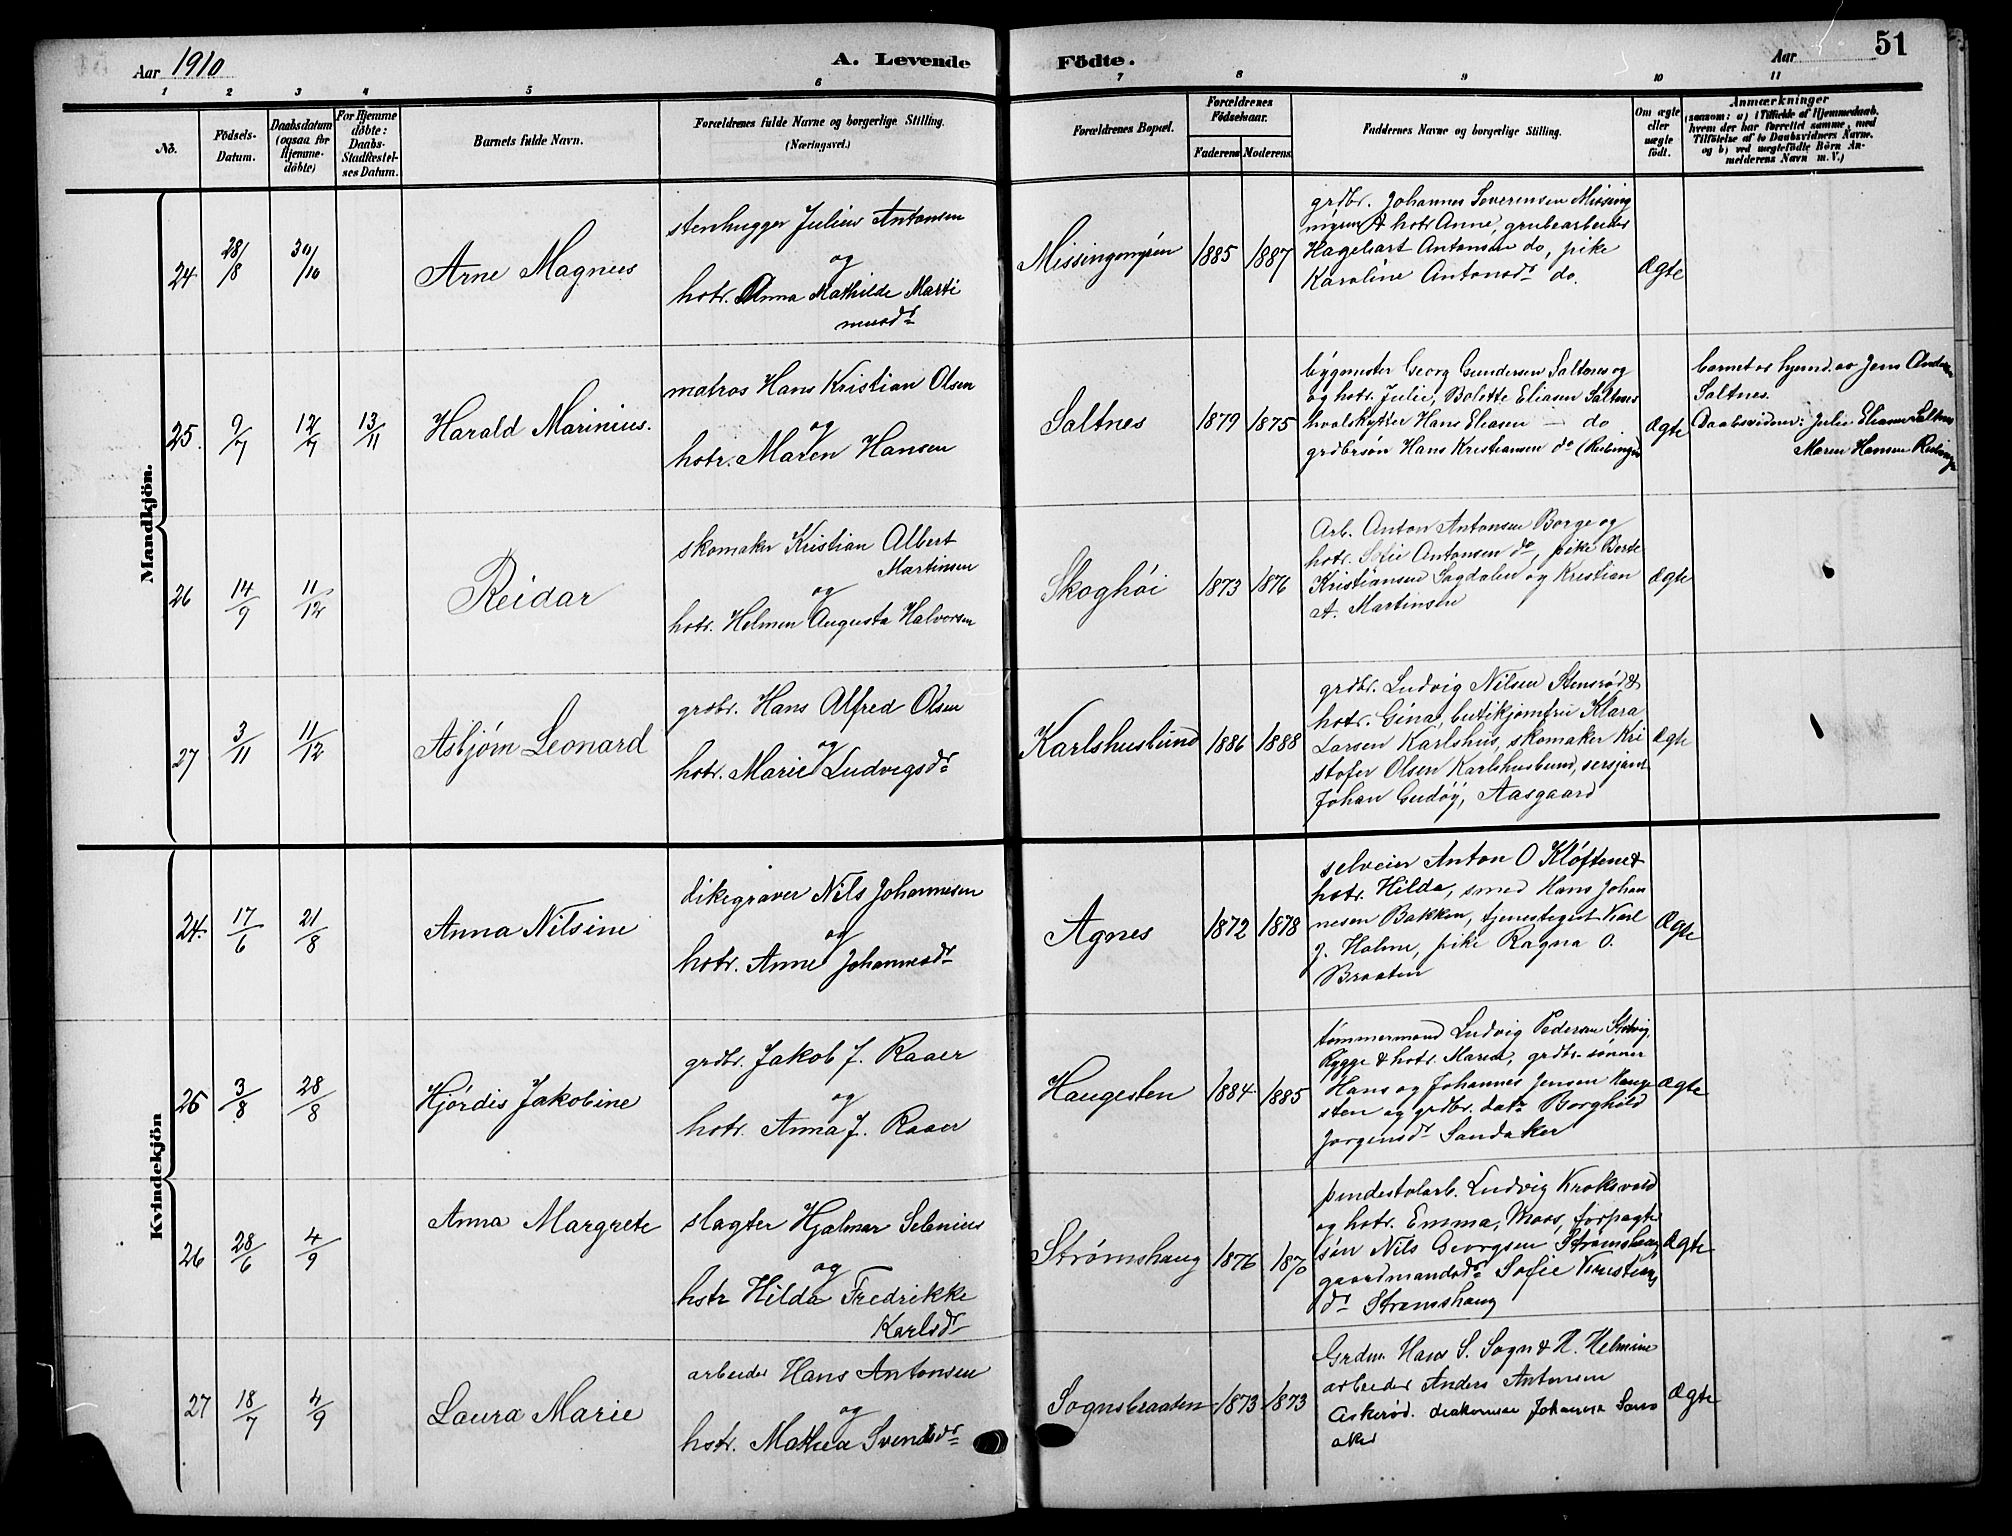 Aar 1910
A. Levende Födte.
Aar
51
1 2 3 4 5 6 7 8 9 10 11
No.
Födsels-Datum.
Daabsdatum (ogsaa for Hjemme-döbte)
For Hjemme döbte: Daabs-Stadfæstel-ses Datum.
Barnets fulde Navn.
Forældrenes fulde Navne og borgerlige Stilling.
(Næringsvei.)
Forældrenes Bopæl.
Forældrenes Födselsaar.
Faderens Moderens
Faddernes Navne og borgerlige Stilling.
Om ægte eller uægte födt.
Anmærkninger
(saasom: a) i Tilfælde af Hjemmedaab,
hvem der har forrettet samme, med
Tilföielse af to Daabsvidners Navne,
og b) ved uægtefödte Börn An-
melderens Navn m. V.)
Mandkjön.
24 28/8 30/10
Arne Magnus
stenhugger Julius Antonsen
og
hstr. Anna Mathilde Marti
nusdr
Missingmyren 1885 1887
grdbr. Johannes Severensen Missing
myren & hstr Anne, grubearbeider
Hagebart Antonsen do, pike
Karoline Antonsdr do.
Ægte
25. 9/7 12/7 13/11
Harald Marinius.
matros Hans Kristian Olsen
og
hstr. Maren Hansen
Saltnes 1879 1875
bygmester Georg Gundersen Saltnes og
og hstr. Julie, Bolette Eliasen Saltnes
hvalskytter Hans Eliasen — do
grdbrsön Hans Kristiansen do
Ægte
barnet er hjemd. av Jens
Saltnes.
Daabsvidner: Julie Eliasen Saltnes
Maren Hansen
26 14/9 11/12
Reidar
skomaker Kristian Albert
Martinsen
og
hstr. Helmen Augusta Halvorsen
Skoghöi 1873 1876
Arb. Anton Antonsen Borge og
hstr. Sofie Antonsen do, pike Borte
Kristiansen Sagdalen og Kristian
A. Martinsen
Ægte
27 3/11 11/12
Asbjörn Leonard
grdbr. Hans Alfred Olsen
og
hstr. Marie Ludvigsdr
Karlshuslund 1886 1888
grdbr. Ludvig Nilsen Stensröd &
hstr. Gina, butikjomfru Klara
Larsen Karlshus, skomaker Kri
stofer Olsen Karlshuslund, sersjant
Johan Gudöy, Aasgaard
Ægte
Kvindekjön
24. 17/6 21/8
Anna Nilsine
dikegraver Nils Johannesen
og
hstr. Anne Johannesdr
Agnes 1872 1878
selveier Anton O Klöftene &
hstr. Hilda, smed Hans Johan
nesen Bakken, tjenestegut Karl
J. Holme, pike Ragna O.
Braaten
Ægte
25 3/8 28/8
Hjördis Jakobine
grdbr. Jakob J. Raaer
og
hstr. Anna J. Raaer
Haugesten 1884 1885
tömmermand Ludvig Pedersen
Rygge & hstr. Maren, grdbr. sönner
Hans og Johannes Jensen Hauge
sten og grdbr. datr Borghild
Jörgensdr Sandaker
Ægte
26 28/6 4/9
Anna Margrete
slagter Hjalmar Selenius
og
hstr Hilda Fredrikke
Karlsdr
Strømshaug 1876 1870
pendestolarb. Ludvig Kroksvold
og hstr. Emma, Moss, forpagter
sön Nils Georgsen Strömshaug
gaardmandsdr Sofie Kristians
dr Strømshaug
Ægte
27 18/7 4/9
Laura Marie
arbeider Hans Antonsen
og
hstr. Mathea Svendsdr
Sognsbraaten 1873 1873
Grdm. Hans S. Sogn & H. Helmine
arbeider Anders Antonsen
Askeröd. diakonisse Johanna
aker
Ægte